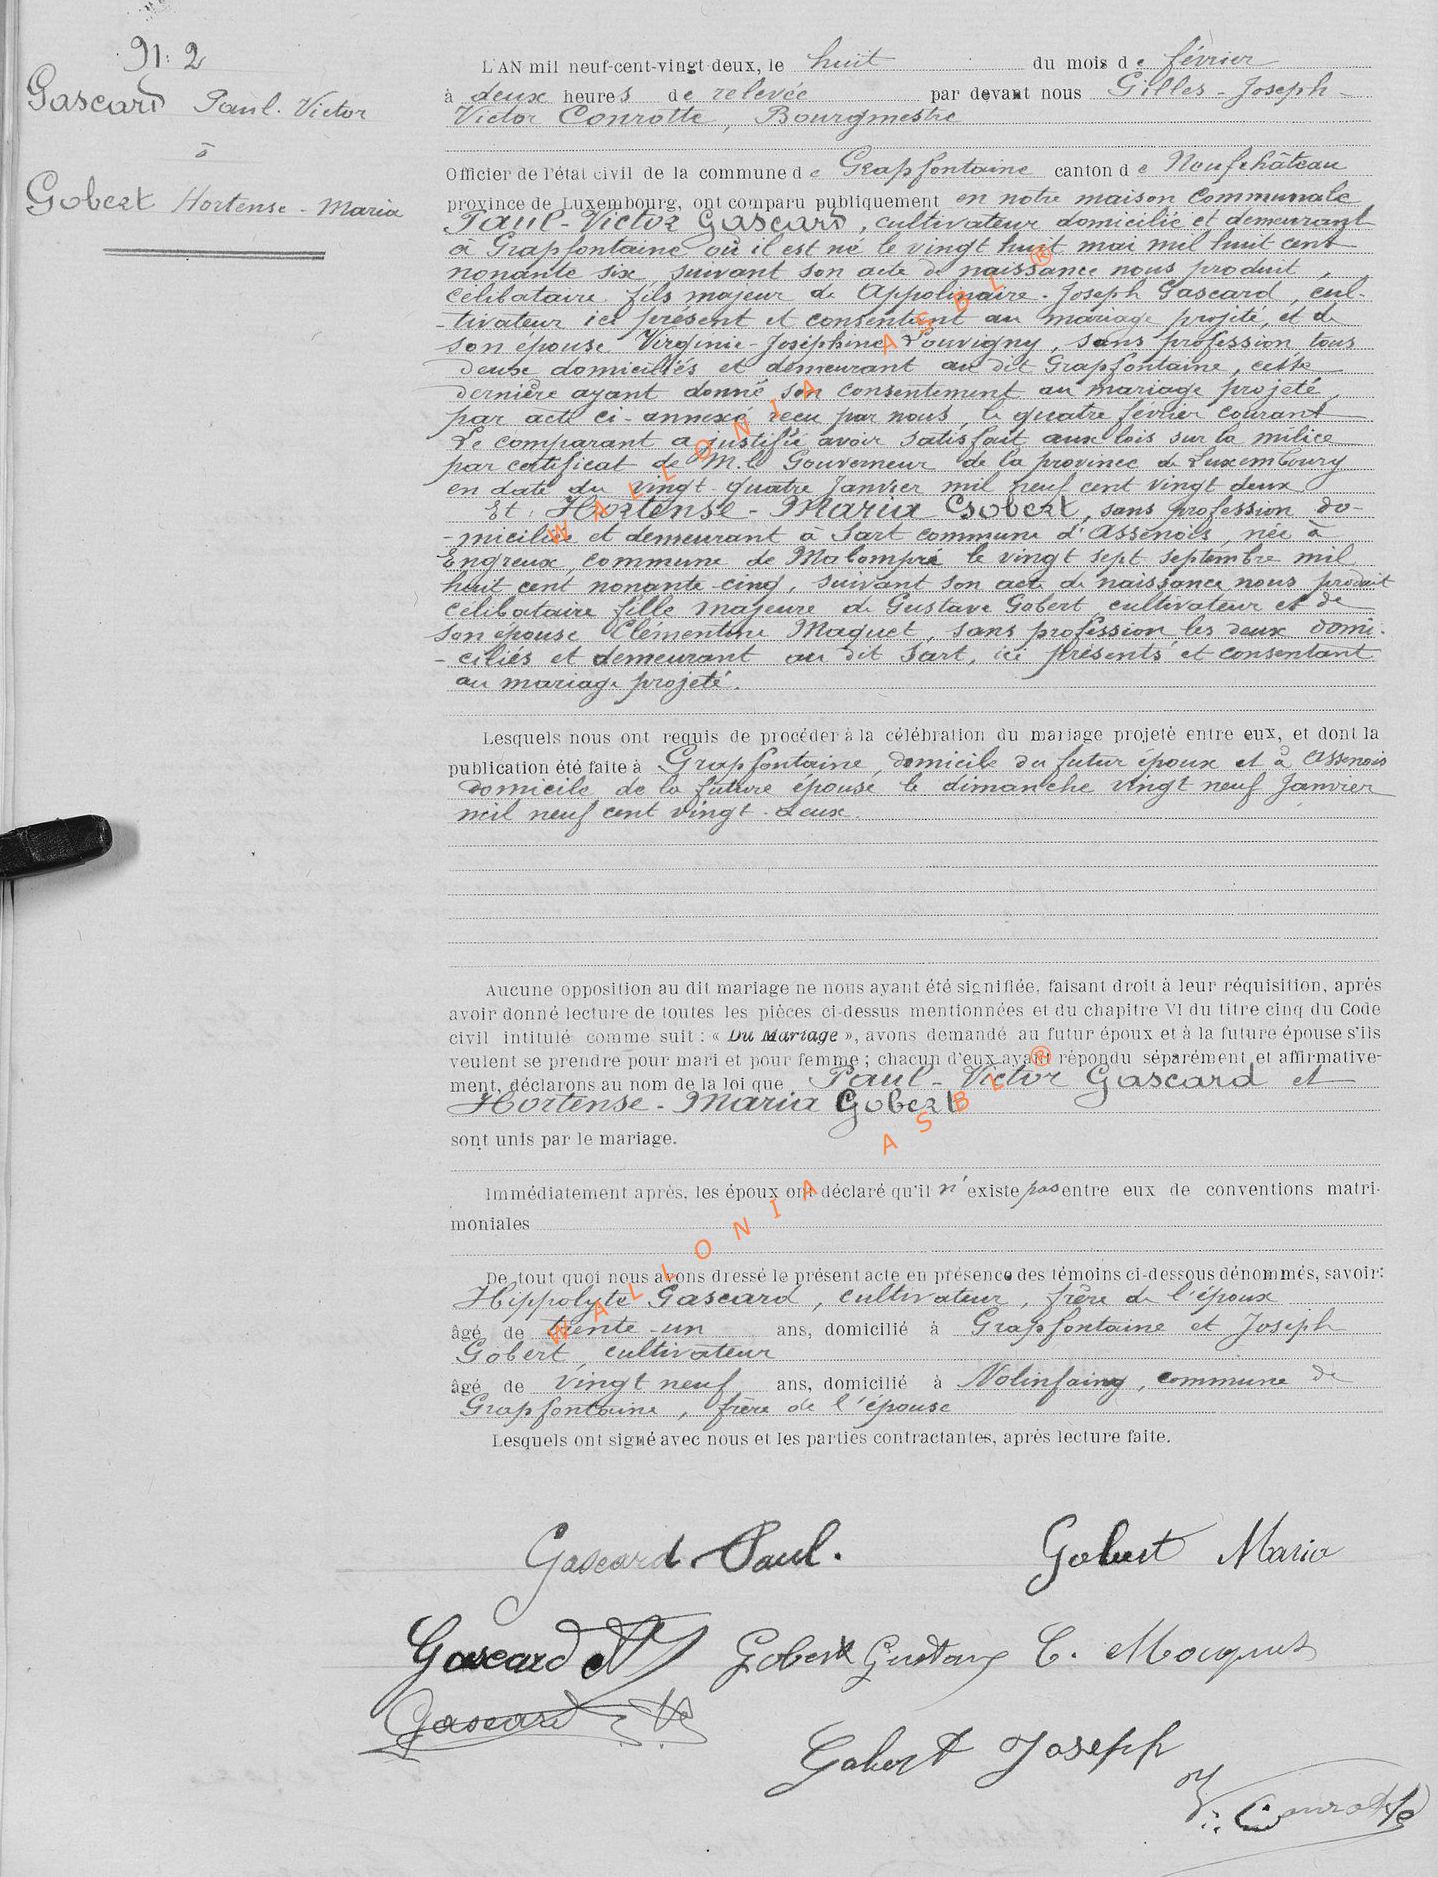 N: 2
Gascard Paul. Victor
à
Gobert Hortense - Maria
L'AN mil neuf-cent-vingt deux, le huit du mois de février
à deux heures de relevée par devant nous Gilles - Joseph -
Victor Conrotte, Bourgmestre
Officier de l'état civil de la commune de Grapfontaine canton de Neufchâteau
province de Luxembourg, ont comparu publiquement en notre maison Communale
Paul - Victor Gascard, cultivateur domicilié et demeurant
à Grapfontaine où il est né le vingt huit mai mil huit cent
nonante six, suivant son acte de naissance nous produit,
célibataire fils majeur de Appolinaire. Joseph Gascard, cul-
-tivateur ici présent et consentant au mariage projeté, et de
son épouse Virginie - Joséphine Louvigny, sans profession tous
deux domiciliés et demeurant au dit Grapfontaine, cette
dernière ayant donné son consentement au mariage projeté
par acte ci-annexé reçu par nous, le quatre février courant
Le comparant a justifié avoir satisfait aux lois sur la milice
par certificat de M. le Gouverneur de la province de Luxembourg
en date du vingt quatre Janvier mil neuf cent vingt deux
Et, Hortense - Maria Gobert, sans profession do-
-miciliée et demeurant à Sart commune d'Assenois, née à
Engreux, commune de Mabompré le vingt sept septembre mil
huit cent nonante cinq, suivant son acte de naissance nous produit
célibataire fille majeure de Gustave Gobert, cultivateur et de
son épouse Clémentine Maquet, sans profession les deux domi-
-ciliés et demeurant au dit Sart, ici présents et consentant
au mariage projeté.
Lesquels nous ont requis de procéder à la célébration du mariage projeté entre eux, et dont la
publication été faite à Grapfontaine, domicile du futur époux et à Assenois
domicile de la future épouse le dimanche vingt neuf Janvier
mil neuf cent vingt-deux.
Aucune opposition au dit mariage ne nous ayant été signifiée, faisant droit à leur réquisition, après
avoir donné lecture de toutes les pièces ci-dessus mentionnées et du chapitre VI du titre cinq du Code
civil intitulé comme suit : « Du Mariage », avons demandé au futur époux et à la future épouse s'ils
veulent se prendre pour mari et pour femme ; chacun d'eux ayant répondu séparément et affirmative-
ment, déclarons au nom de la loi que Paul - Victor Gascard et
Hortense - Maria Gobert
sont unis par le mariage.
Immédiatement après, les époux ont déclaré qu'il n'existe pas entre eux de conventions matri-
moniales
De tout quoi nous avons dressé le présent acte en présence des témoins ci-dessous dénommés, savoir:
Hippolyte Gascard, cultivateur, frère de l'époux
âgé de trente-un ans, domicilié à Grapfontaine et Joseph
Gobert, cultivateur
âgé de vingt neuf ans, domicilié à Nolinfaing, commune de
Grapfontaine, frère de l'épouse
Lesquels ont signé avec nous et les parties contractantes, après lecture faite.
Gascard Paul. Gobert Maria
Gascard Gobert Gustave C. Macquet
Gascard
Gobert Joseph
V. Conrotte
WALLONIA ASBL ®
WALLONIA ASBL ®